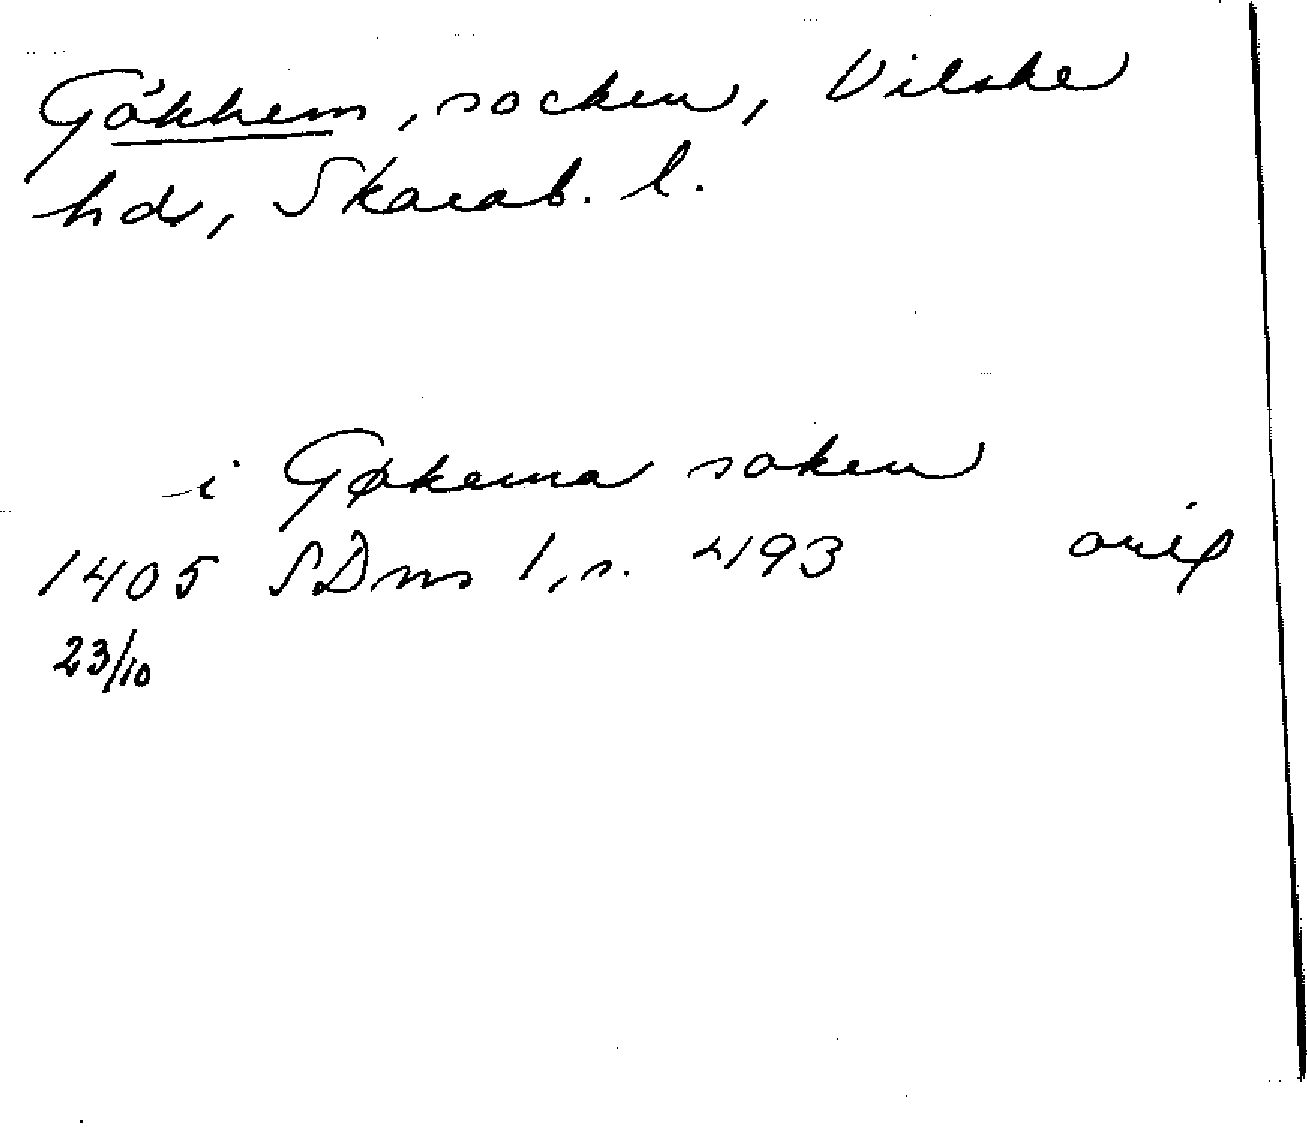 Gökhem, socken, Vilske
hd, Skarab. l.
i Gøkema soken
1405 SDns 1, s. 493 orig
23/10